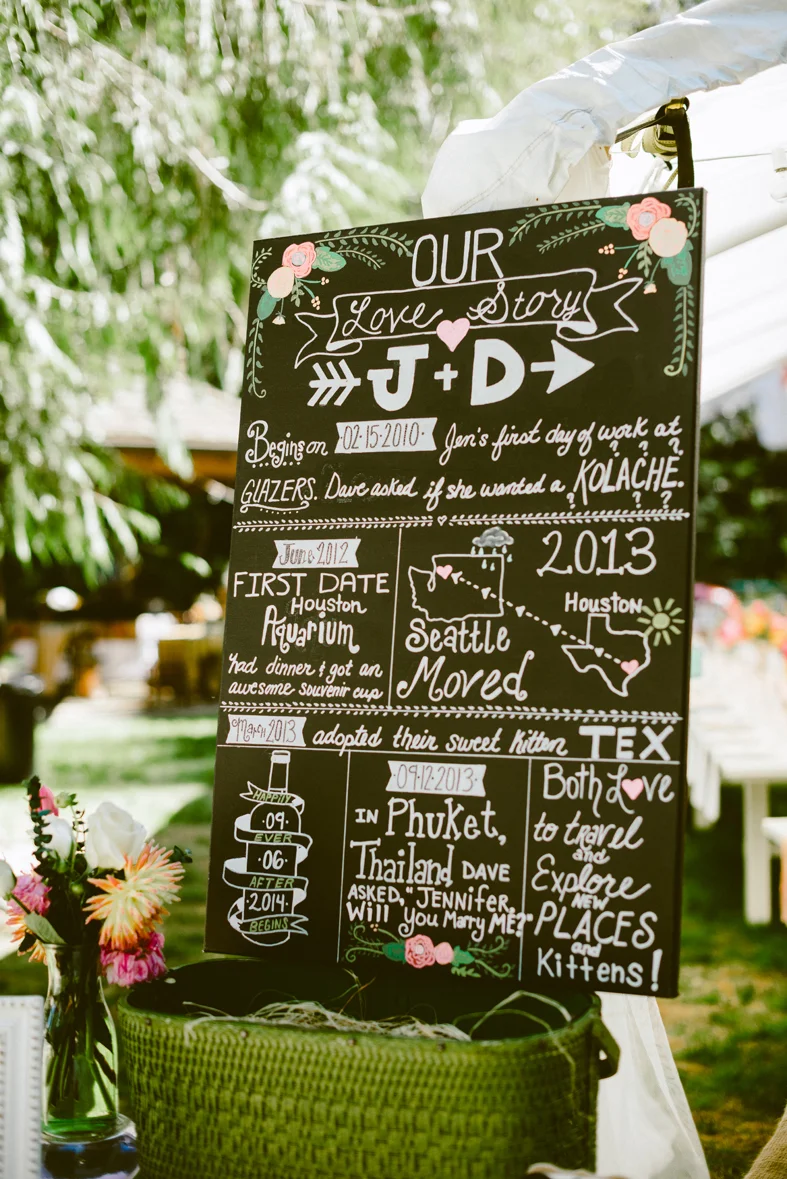 OUR
Love Story
J + D
Begins on 02·15·2010· Jen's first day of work at
GLAZERS. Dave asked if she wanted a KOLACHE.
? ? ? ? ? ?
June 2012
FIRST DATE
Houston
Aquarium
had dinner & got an
awesome souvenir cup
2013
Houston
Seattle
Moved
March 2013 adopted their sweet kitten TEX
HAPPILY
·09·
EVER
·06·
AFTER
·2014·
BEGINS
·09·12·2013·
IN Phuket,
Thailand DAVE
ASKED, "JENNIFER,
Will you Marry ME?"
Both Love
to travel
and
Explore
NEW
PLACES
and
Kittens!